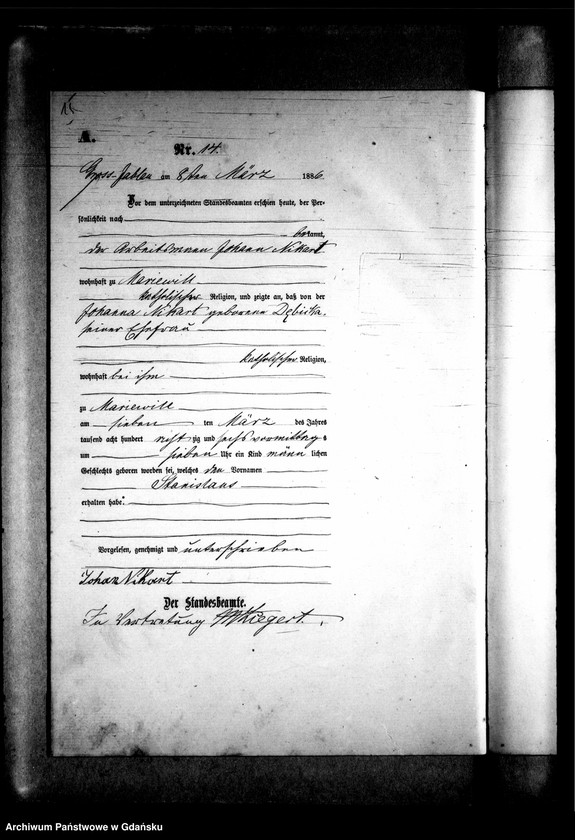 15
A.
Nr. 14.
Gross-Jablau am 8ten März 1886.
Vor dem unterzeichneten Standesbeamten erschien heute, der Per-
sönlichkeit nach
bekannt,
der Arbeitsmann Johann Nikart
wohnhaft zu Mariewill
katholischer Religion, und zeigte an, daß von der
Johanna Nikart geborenen Dębicka.
seiner Ehefrau
katholischer Religion,
wohnhaft bei ihm
zu Mariewill
am sieben ten März des Jahres
tausend acht hundert acht zig und sechs vormittag s
um sieben Uhr ein Kind männ lichen
Geschlechts geboren worden sei, welches den Vornamen
Stanislaus
erhalten habe.
Vorgelesen, genehmigt und unterschrieben
Johan Nikart
Der Standesbeamte.
In Vertretung Kiegert.
Archiwum Państwowe w Gdańsku